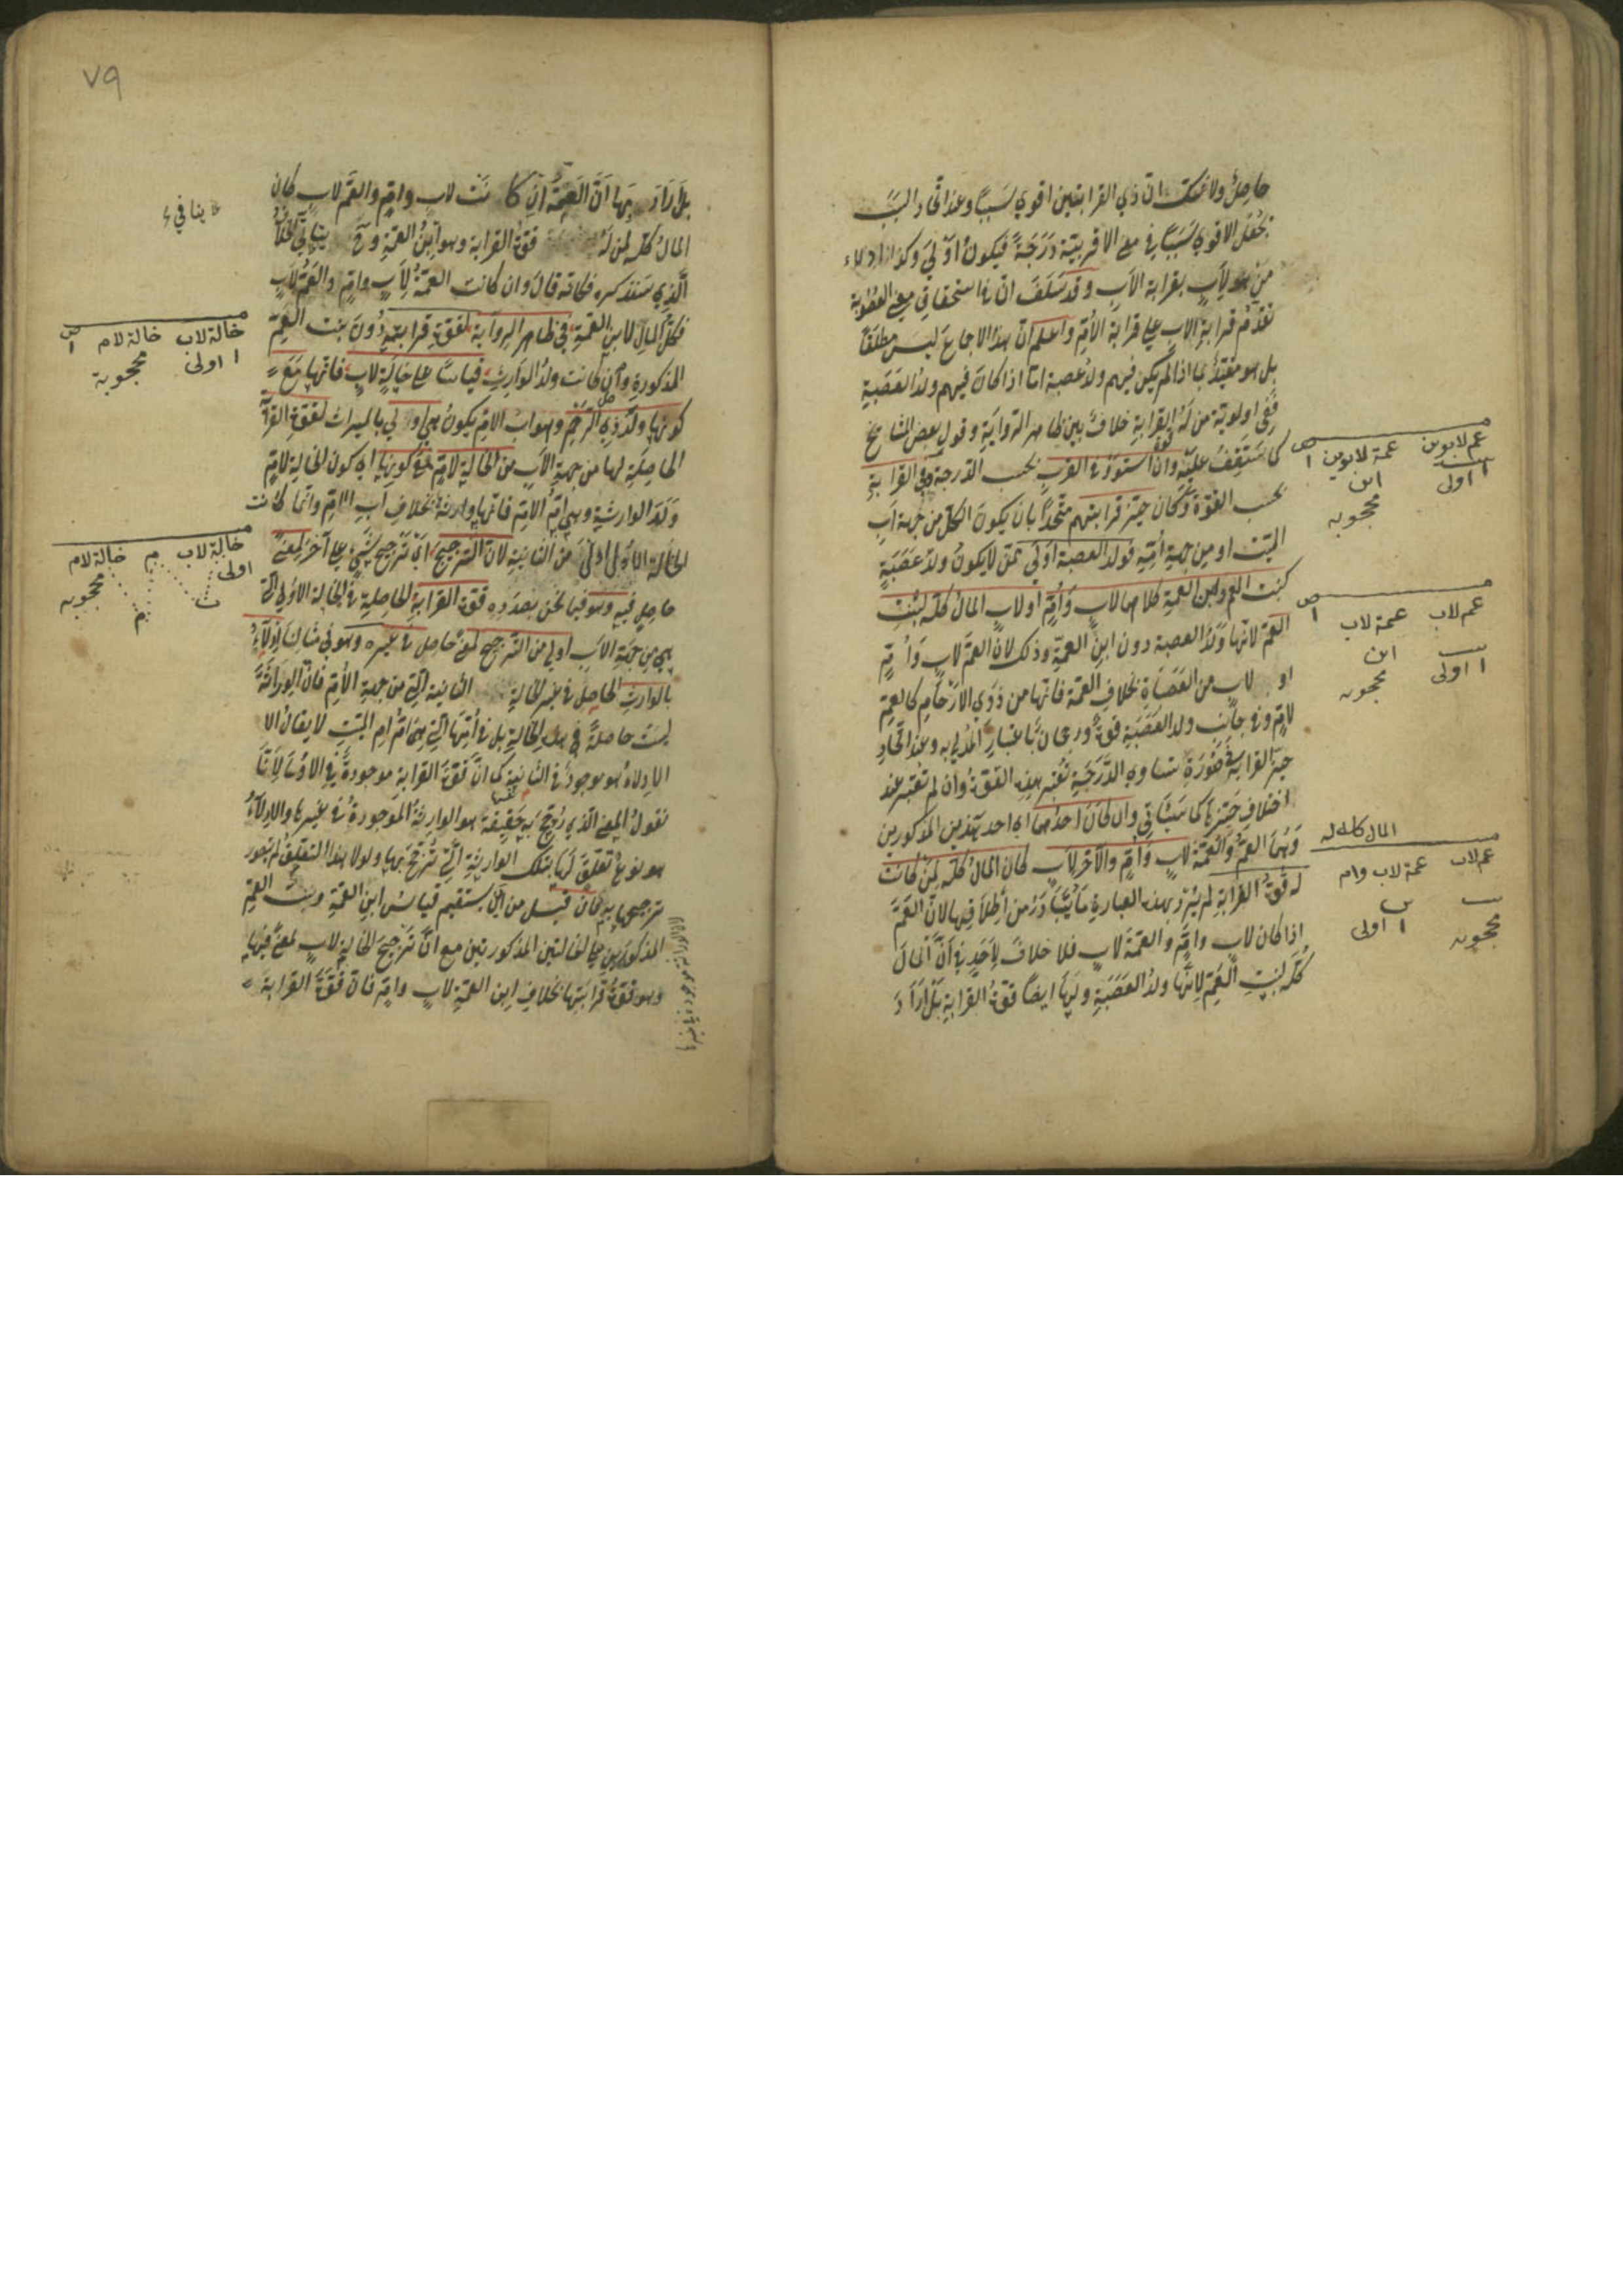 حاصل ولا شك ان ذي القرابتين اقوي سببا وعند اتحاد السبب
يجعل الاقوي سببا في معني الاقربية درجة فيكون اولي وكذا ادلاء
من هو لاب بقرابة الاب وقد سلف ان في استحقاق معني العصوبة
تقدم قرابة الاب علي قرابة الام واعلم ان هذا الاجماع ليس مطلقا
بل هو مقيد بما اذا لم يكن فيهم ولد عصبة اما اذا كان فيهم ولد العصبة
ففي اولوية من له القرابة خلاف بين ظاهر الرواية وقول بعض المشايخ
كما ستقف عليه وان استووا في القرب بحسب الدرجة وفي القرابة
بحسب القوة وكان حيز قرابتهم متحدا بان يكون الكل من جهة اب
الميت او من جهة امه فولد العصبة اولي ممن لا يكون ولد عصبة
كبنت العم وابن العمة كلاهما لاب وام او لاب المال كله لبنت
العم لانها ولد العصبة دون ابن العمة وذلك لان العم لاب وام
او لاب من العصبات بخلاف العمة فانها من ذوي الارحام كالعم
لام وفي جانب ولد العصبة قوة ورجحان باعتبار المدلي به وعند اتحاد
حيز القرابة في صورة تساوي الدرجة تعتبر هذه القوة وان لم تعتبر عند
اختلاف حيزها كما سيأتي وان كان احدهما اي احد هذين المذكورين
وهما العم والعمة لاب وام والآخر لاب كان المال كله لمن كانت
له قوة القرابة لم يرد بهذه العبارة ما يتبادر من اطلاقها لان العم
اذا كان لاب وام والعمة لاب فلا خلاف لاحد في ان المال
كله لبنت العم لانها ولد العصبة ولها ايضا قوة القرابة بل اراد
عم لابوين عمة لابوين
بنت ابن
اولى محجوبه
عم لاب عمة لاب
بنت ابن
اولى محجوبه
المال كله له
عم لاب عمة لاب وام
محجوبه اولى
٧٩
بل اراد بها ان العمة ان كانت لاب وام والعم لاب كان
المال كله لمن له قوة القرابة وهو ابن العمة وح ينافي الخلاف
الذي ستذكره فكانه قال وان كانت العمة لاب وام والعم لاب
فكل المال لابن العمة في ظاهر الرواية لقوة قرابته دون بنت العم
المذكورة وان كانت ولد الوارث قياسا علي خالة لاب فانها مع
كونها ولد ذي الرحم وهو اب الام يكون هي اولي بالميراث لقوة القرابة
الحاصلة لها من جهة الاب من الخالة لام مع كونها اي كون الخالة لام
ولد الوارثة وهي ام الام فانها وارثة بخلاف اب الام وانما كانت
الخالة الاولي اولي من الثانية لان الترجيح اي ترجيح شيء علي آخر لمعني
حاصل فيه وهو فيما نحن بصدده قوة القرابة الحاصلة في الخالة الاولي التي
هي من جهة الاب اولي من الترجيح لمعني حاصل في غيره وهو في مثالنا الادلاء
بالوارث الحاصل في غير الخالة الثانية التي من جهة الام فان الوراثة
ليست حاصلة في هذه الخالة بل في امها التي هي ام ام الميت لا يقال الا
الادلاء هو موجود في الثانية كما ان قوة القرابة موجودة في الاولي لانا
نقول المعني الذي رجح به حقيقة هو الوارثة الموجودة في غيرها والادلاء
هو نوع تعلق لها بتلك الوارثة التي ترجح بها ولولا هذا التعلق لم يجوز
ترجيحها به فان قيل من اين يستقيم قياس ابن العمة وبنت العم
المذكورين علي الخالتين المذكورتين مع ان ترجيح الخالة لاب لمعني فيها
وهو قوة قرابتها بخلاف ابن العمة لاب وام فان قوة القرابة
ينافي
خالة لاب خالة لام
اولى محجوبة
خالة لاب م خالة لام
اولى محجوبه